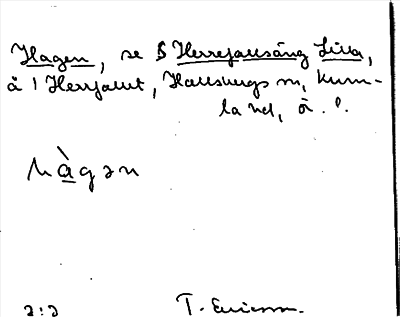 Hagen, se § Herrefallsäng Lilla,
å 1 Herrfallet, Hallsbergs sn, Kum-
la hd, Ö.
hàgən
2:2 T. Ericsson.